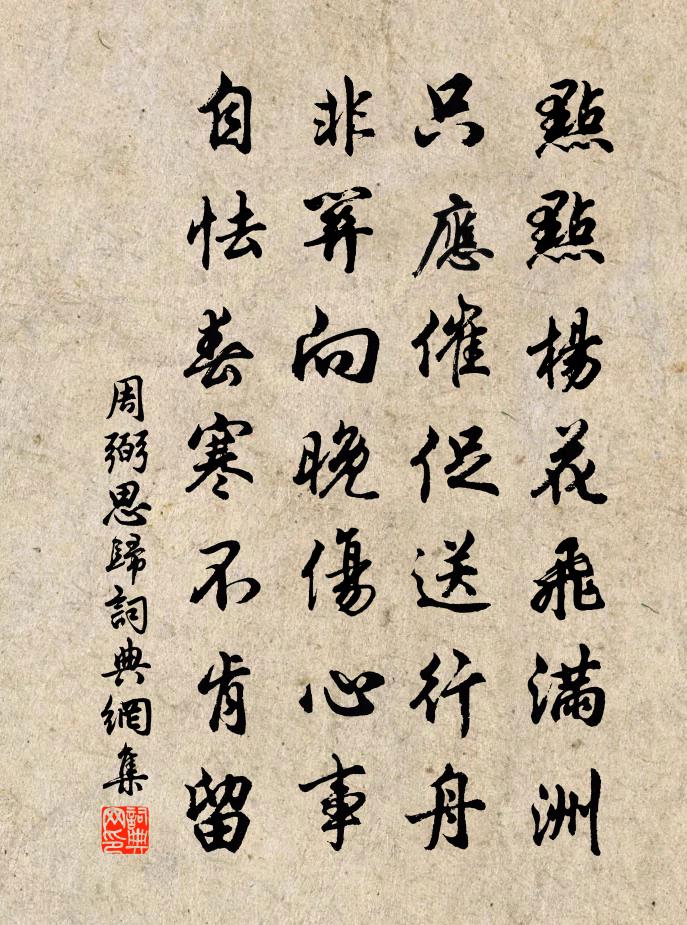 點點楊花飛滿洲
只應催促送行舟
非關向晚傷心事
自怯春寒不肯留
周弼思歸詞典網集
詞典网印